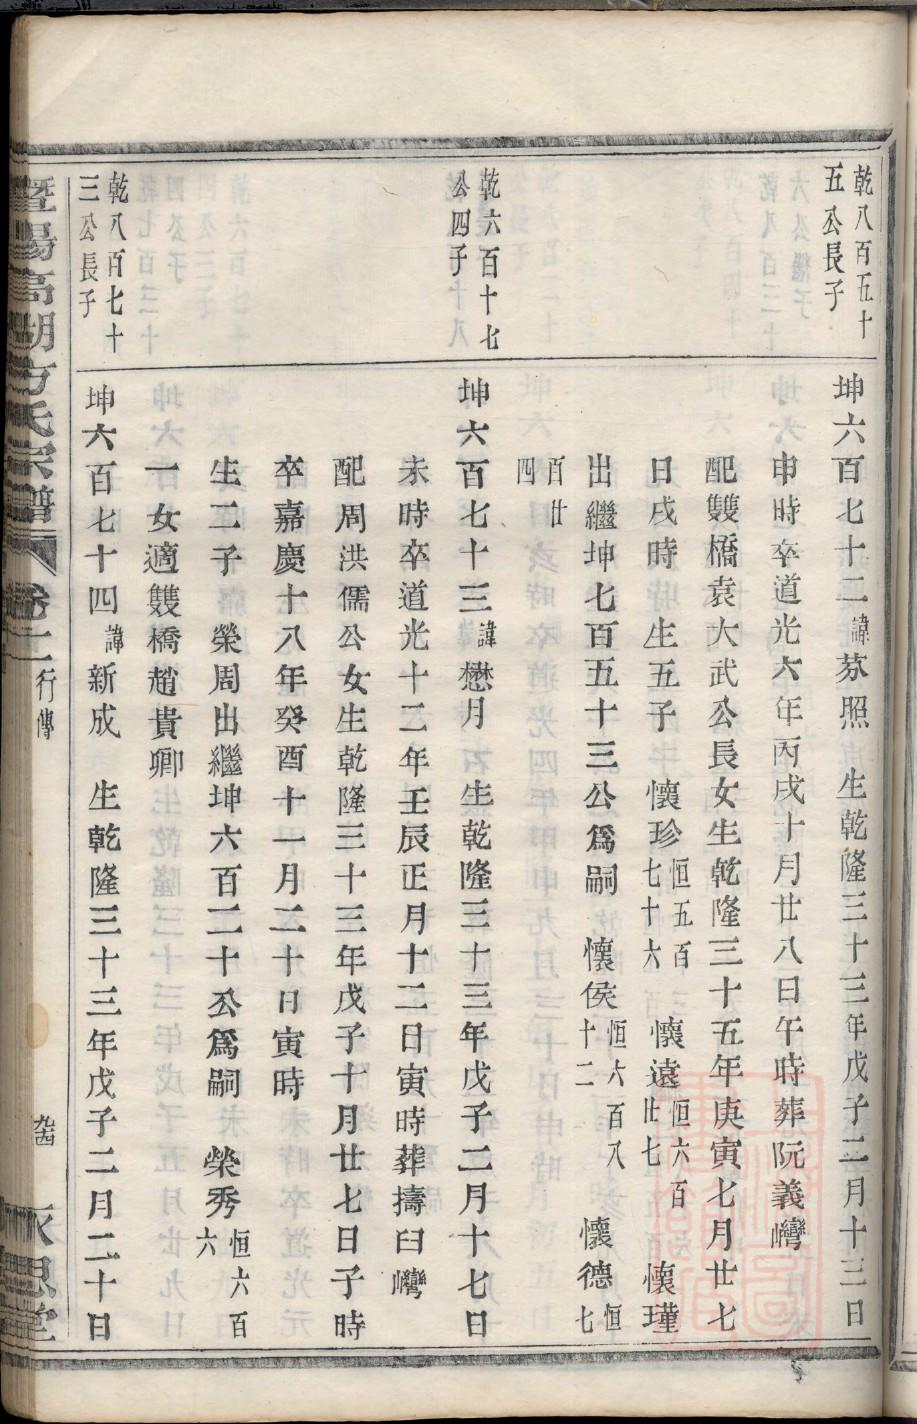 乾八百五十
五公長子
坤六百七十二諱芬照 生乾隆三十三年戊子二月十三日
申時卒道光六年丙戌十月廿八日午時葬阮義灣
配雙橋袁大武公長女生乾隆三十五年庚寅七月廿七
日戌時生五子 懷珍恒五百七十六 懷遠恒六百廿七 懷瑾
出繼坤七百五十三公爲嗣 懷侯恒六百八十二 懷德恒七
百廿四
乾六百十七
公四子
坤六百七十三諱懋月 生乾隆三十三年戊子二月十七日
未時卒道光十二年壬辰正月十二日寅時葬擣臼灣
配周洪儒公女生乾隆三十三年戊子十月廿七日子時
卒嘉慶十八年癸酉十一月二十日寅時
生二子 榮周出繼坤六百二十公爲嗣 榮秀恒六百六
一女適雙橋趙貴卿
乾八百七十
三公長子
坤六百七十四諱新成 生乾隆三十三年戊子二月二十日
暨陽高湖方氏宗譜 卷二 行傳
永思堂